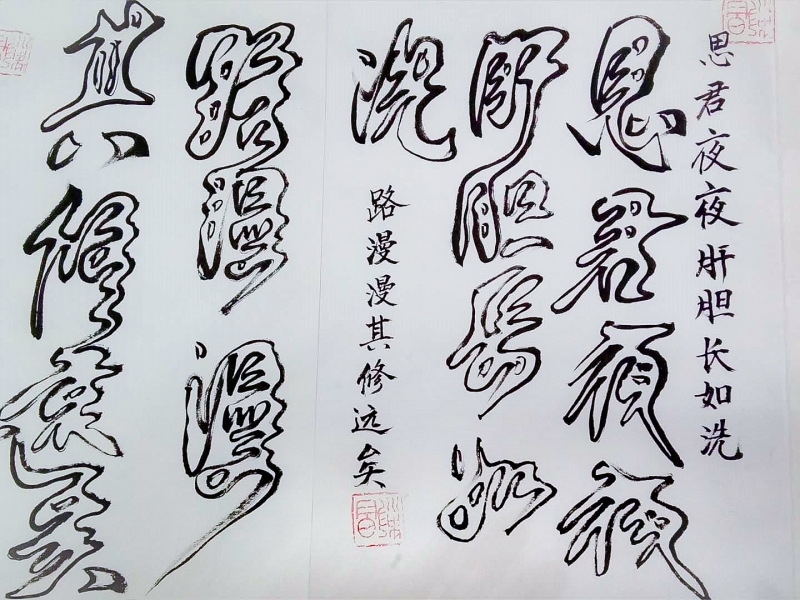 思君夜夜肝胆长如洗
思君夜夜
肝胆长如
洗
路漫漫其修远矣
路漫漫
其修远矣